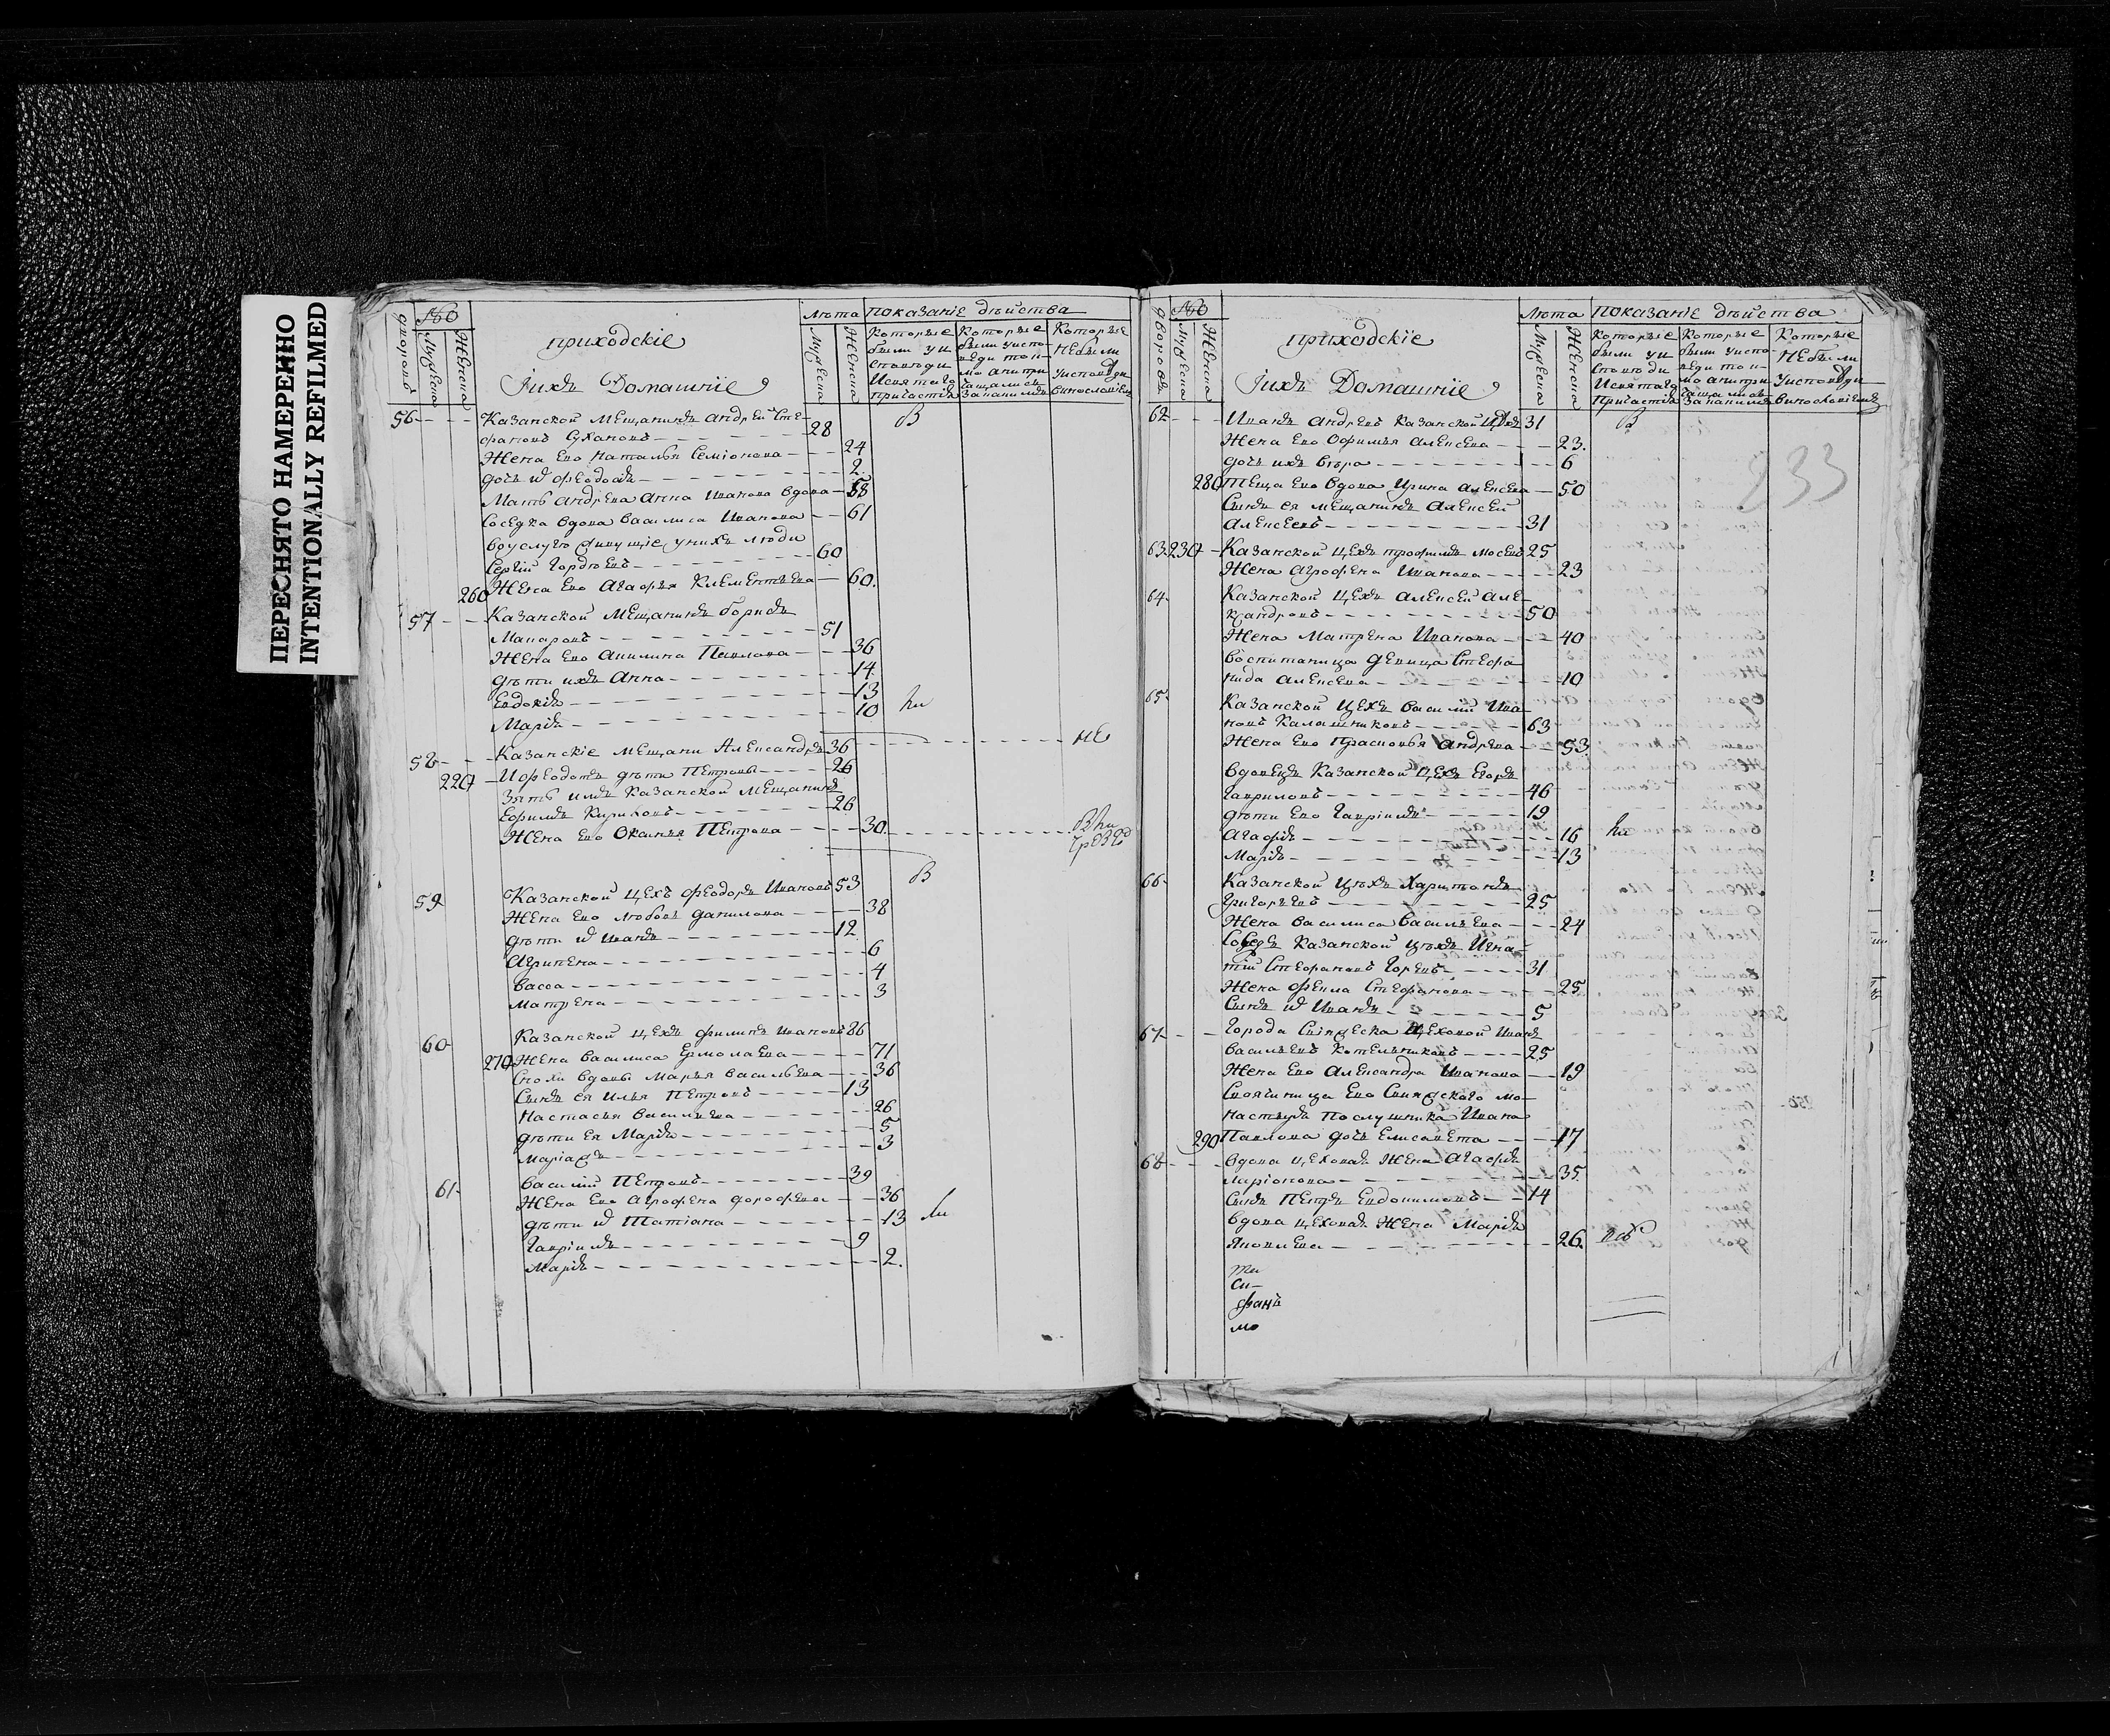 ПЕРЕСНЯТО НАМЕРЕННО
INTENTIONALLY REFILMED
№
Лѣта показаніе дѣйства
дворовъ
Мужеска
Женска
приходскіе
Іихъ Домашніе
Мужеска
Женска
Которые были у исповѣди и святаго причастія
Которые были у исповѣди то и мо а не причащались
Которые не были у исповѣди
56 Казанской Мещанинъ Андрей Сте-
фановъ Сухановъ 28 В
Жена Ево Наталья Семіонова 24
дочь Ѿ Феодосія 2
Мать Андреева Анна Иванова вдова 58
Соседка вдова Василиса Иванова 61
Во услуго живущіе у нихъ люди
Сергій Гордѣевъ 60
260 Жена Ево Агафья Клементьева 60
57 Казанской Мещанинъ Борисъ
Макаровъ 51
Жена Ево Акилина Павлова 36
дѣти ихъ Анна 14
Евдокія 13
Марія 10 ли
58 Казанскіе Мещани Александръ 36 не
220 И Федотъ дѣти Петровы 26
Зять имъ Казанской Мещанинъ
Ефимъ Кириловъ 26
Жена Ево Оксинья Петрова 30
59 Казанской Цехъ Феодоръ Ивановъ 53 В
Жена Ево Любовь Данилова 38
дѣти Ѿ Иванъ 12
Агрипена 6
Васса 4
Матрена 3
60 Казанской Цехъ Филипъ Ивановъ 86
270 Жена Василиса Ермолаева 71
Снохи вдовы Марья Васильева 36
Сынъ ея Илья Петровъ 13
Настасья Васильева 26
дѣти Ея Марія 5
Маріа 3
61 Василій Петровъ 39
Жена Ево Агрофена Дорофеева 36
дѣти Ѿ Татіана 13 ли
Гавріилъ 9
Марія 2
№
Лѣта показаніе дѣйства
дворовъ
Мужеска
Женска
приходскіе
Іихъ Домашніе
Мужеска
Женска
Которые были у исповѣди и святаго причастія
Которые были у исповѣди то и мо а не причащались
Которые не были у исповѣди
62 Иванъ Андреевъ Казанской Цехъ 31 В
Жена Ево Офимья Алексеева 23
дочь ихъ Вѣра 6
233
280 Теща Ево вдова Ирина Алексеева 50
Сынъ ея Мещанинъ Алексей
Алексеевъ 31
63 230 Казанской Цехъ Трофимъ Мосеевъ 25
Жена Агрофена Иванова 23
64 Казанской Цехъ Алексей Але-
ксандровъ 50
Жена Матрена Иванова 40
Воспитаница девица Стефа-
нида Алексеева 10
65 Казанской Цехъ Василій Ива-
новъ Калашниковъ 63
Жена Ево Прасковья Андреева 53
Вдовецъ Казанской Цехъ Егоръ
Гавриловъ 46
дѣти Ево Гавріилъ 19
Агафья 16 ли
Марія 13
66 Казанской Цѣхъ Харитонъ
Григорьевъ 25
Жена Василиса Васильева 24
Соседъ Казанской Цѣхъ Игна-
тій Стефановъ Горевъ 31
Жена Фекла Стефанова 25
Сынъ Ѿ Иванъ 5
67 Города Свіяжска Цеховой Иванъ
Васильевъ Котельниковъ 25
Жена Ево Александра Иванова 19
Свояшница Ево Свияжского мо-
настыря Послушника Ивана
290 Павлова дочь Елисавета 17
68 Вдова Цеховая Жена Агафья
Ларіонова 35
Сынъ Петръ Евдокимовъ 14
Вдова Цеховая Жена Марія
Яковлева 26
Си-
фанъ
мо